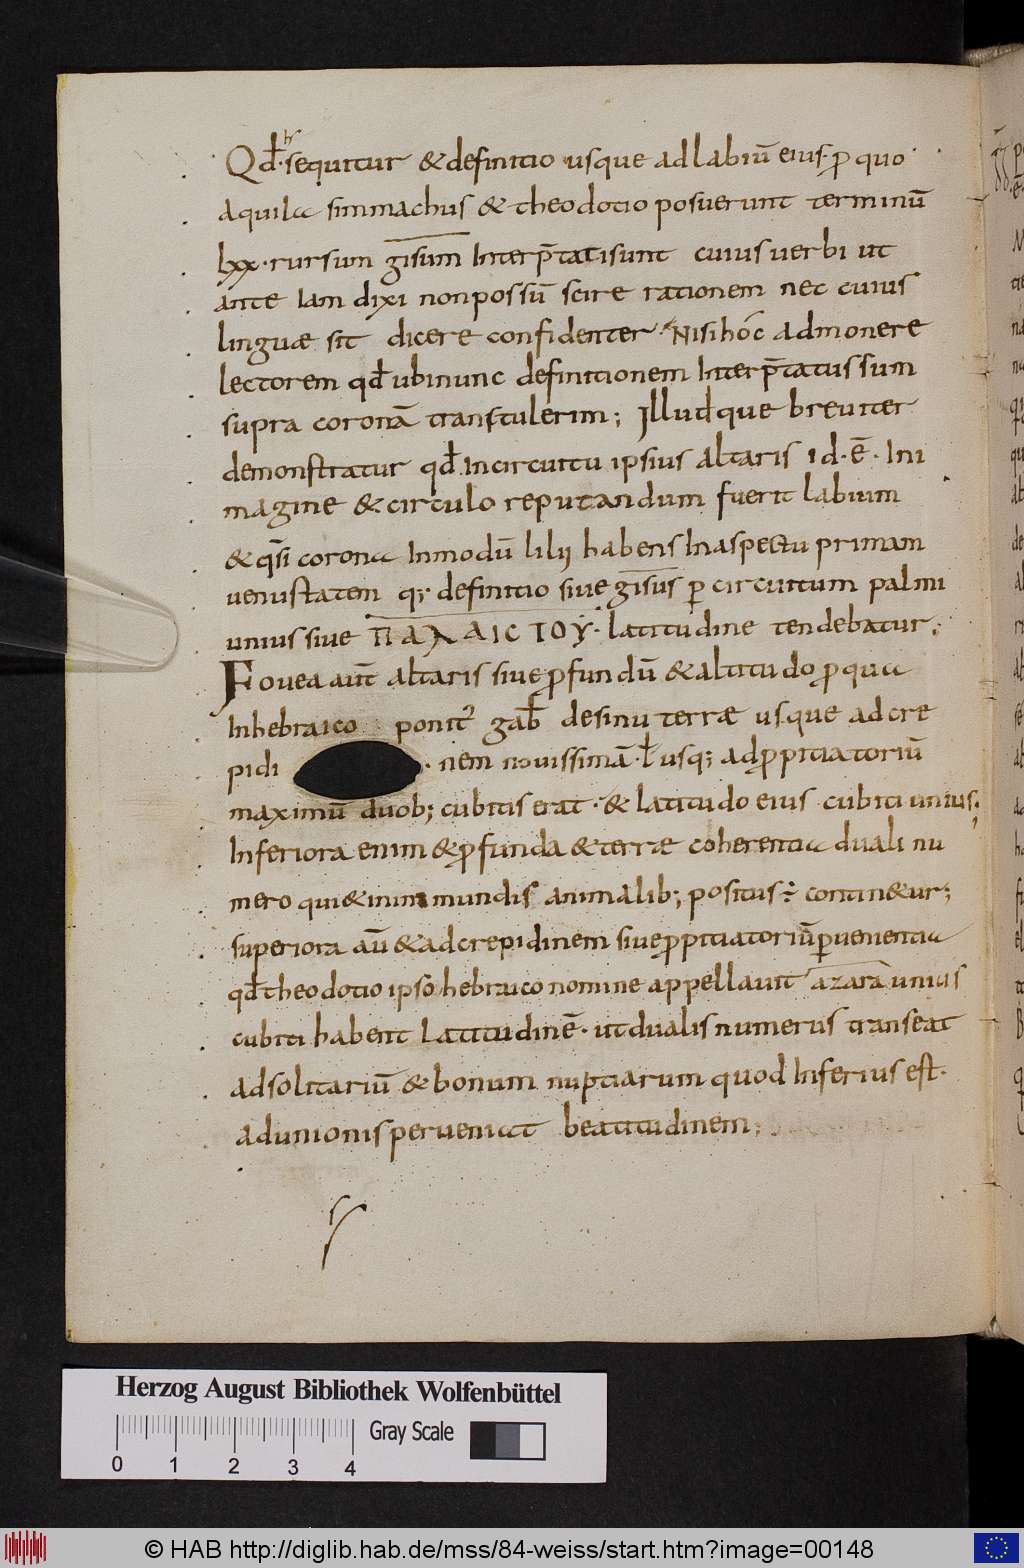 Qd̄ sequitur & definitio usque ad labiū eius · p̱ quo
aquila simmachus & theodotio posuerunt terminū
lxx · rursum gisum Interp̄tati sunt cuius uerbi ut
ante Iam dixi non possū scire rationem nec cuius
linguae sit dicere confidenter · Nisi hoc admonere
lectorem qd̄ ubi nunc definitionem Interp̄tatus sum
supra coronā transtulerim; Illudque breuiter
demonstratur qd̄ In circuitu ipsius altaris id · ē · In i
magine & circulo reputandum fuerit labium
& qsi corona In modū lilii habens In aspectu primam
uenustatem q; definitio siue gisus p̱ circuitum palmi
unius siue ΠΑΛΑΙCΤΟΥ · latitudine tendebatur;
Fouea aut̄ altaris siue p̱fundū & altitudo p̱ qua
In hebraico ponit᷒ gab̄ de sinu terrae usque ad cre
pidi nem nouissimā · ł usq; ad p̱pitiatoriū
maximū duob; cubitis erat · & latitudo eius cubiti unius;
Inferiora enim & p̱funda & terrae coherentia duali nu
mero qui & in inmundis animalib; positus ÷ contin&ur;
superiora aū & ad crepidinem siue p̱pitiatoriū p̱uenientia
qd̄ theodotio ipso hebraico nomine appellauit azara unius
cubiti habent Latitudinē · ut dualis numerus transeat
ad solitariū & bonum nuptiarum quod Inferius est ·
ad unionis perueniat beatitudinem;
Herzog August Bibliothek Wolfenbüttel
0 1 2 3 4
Gray Scale
© HAB http://diglib.hab.de/mss/84-weiss/start.htm?image=00148